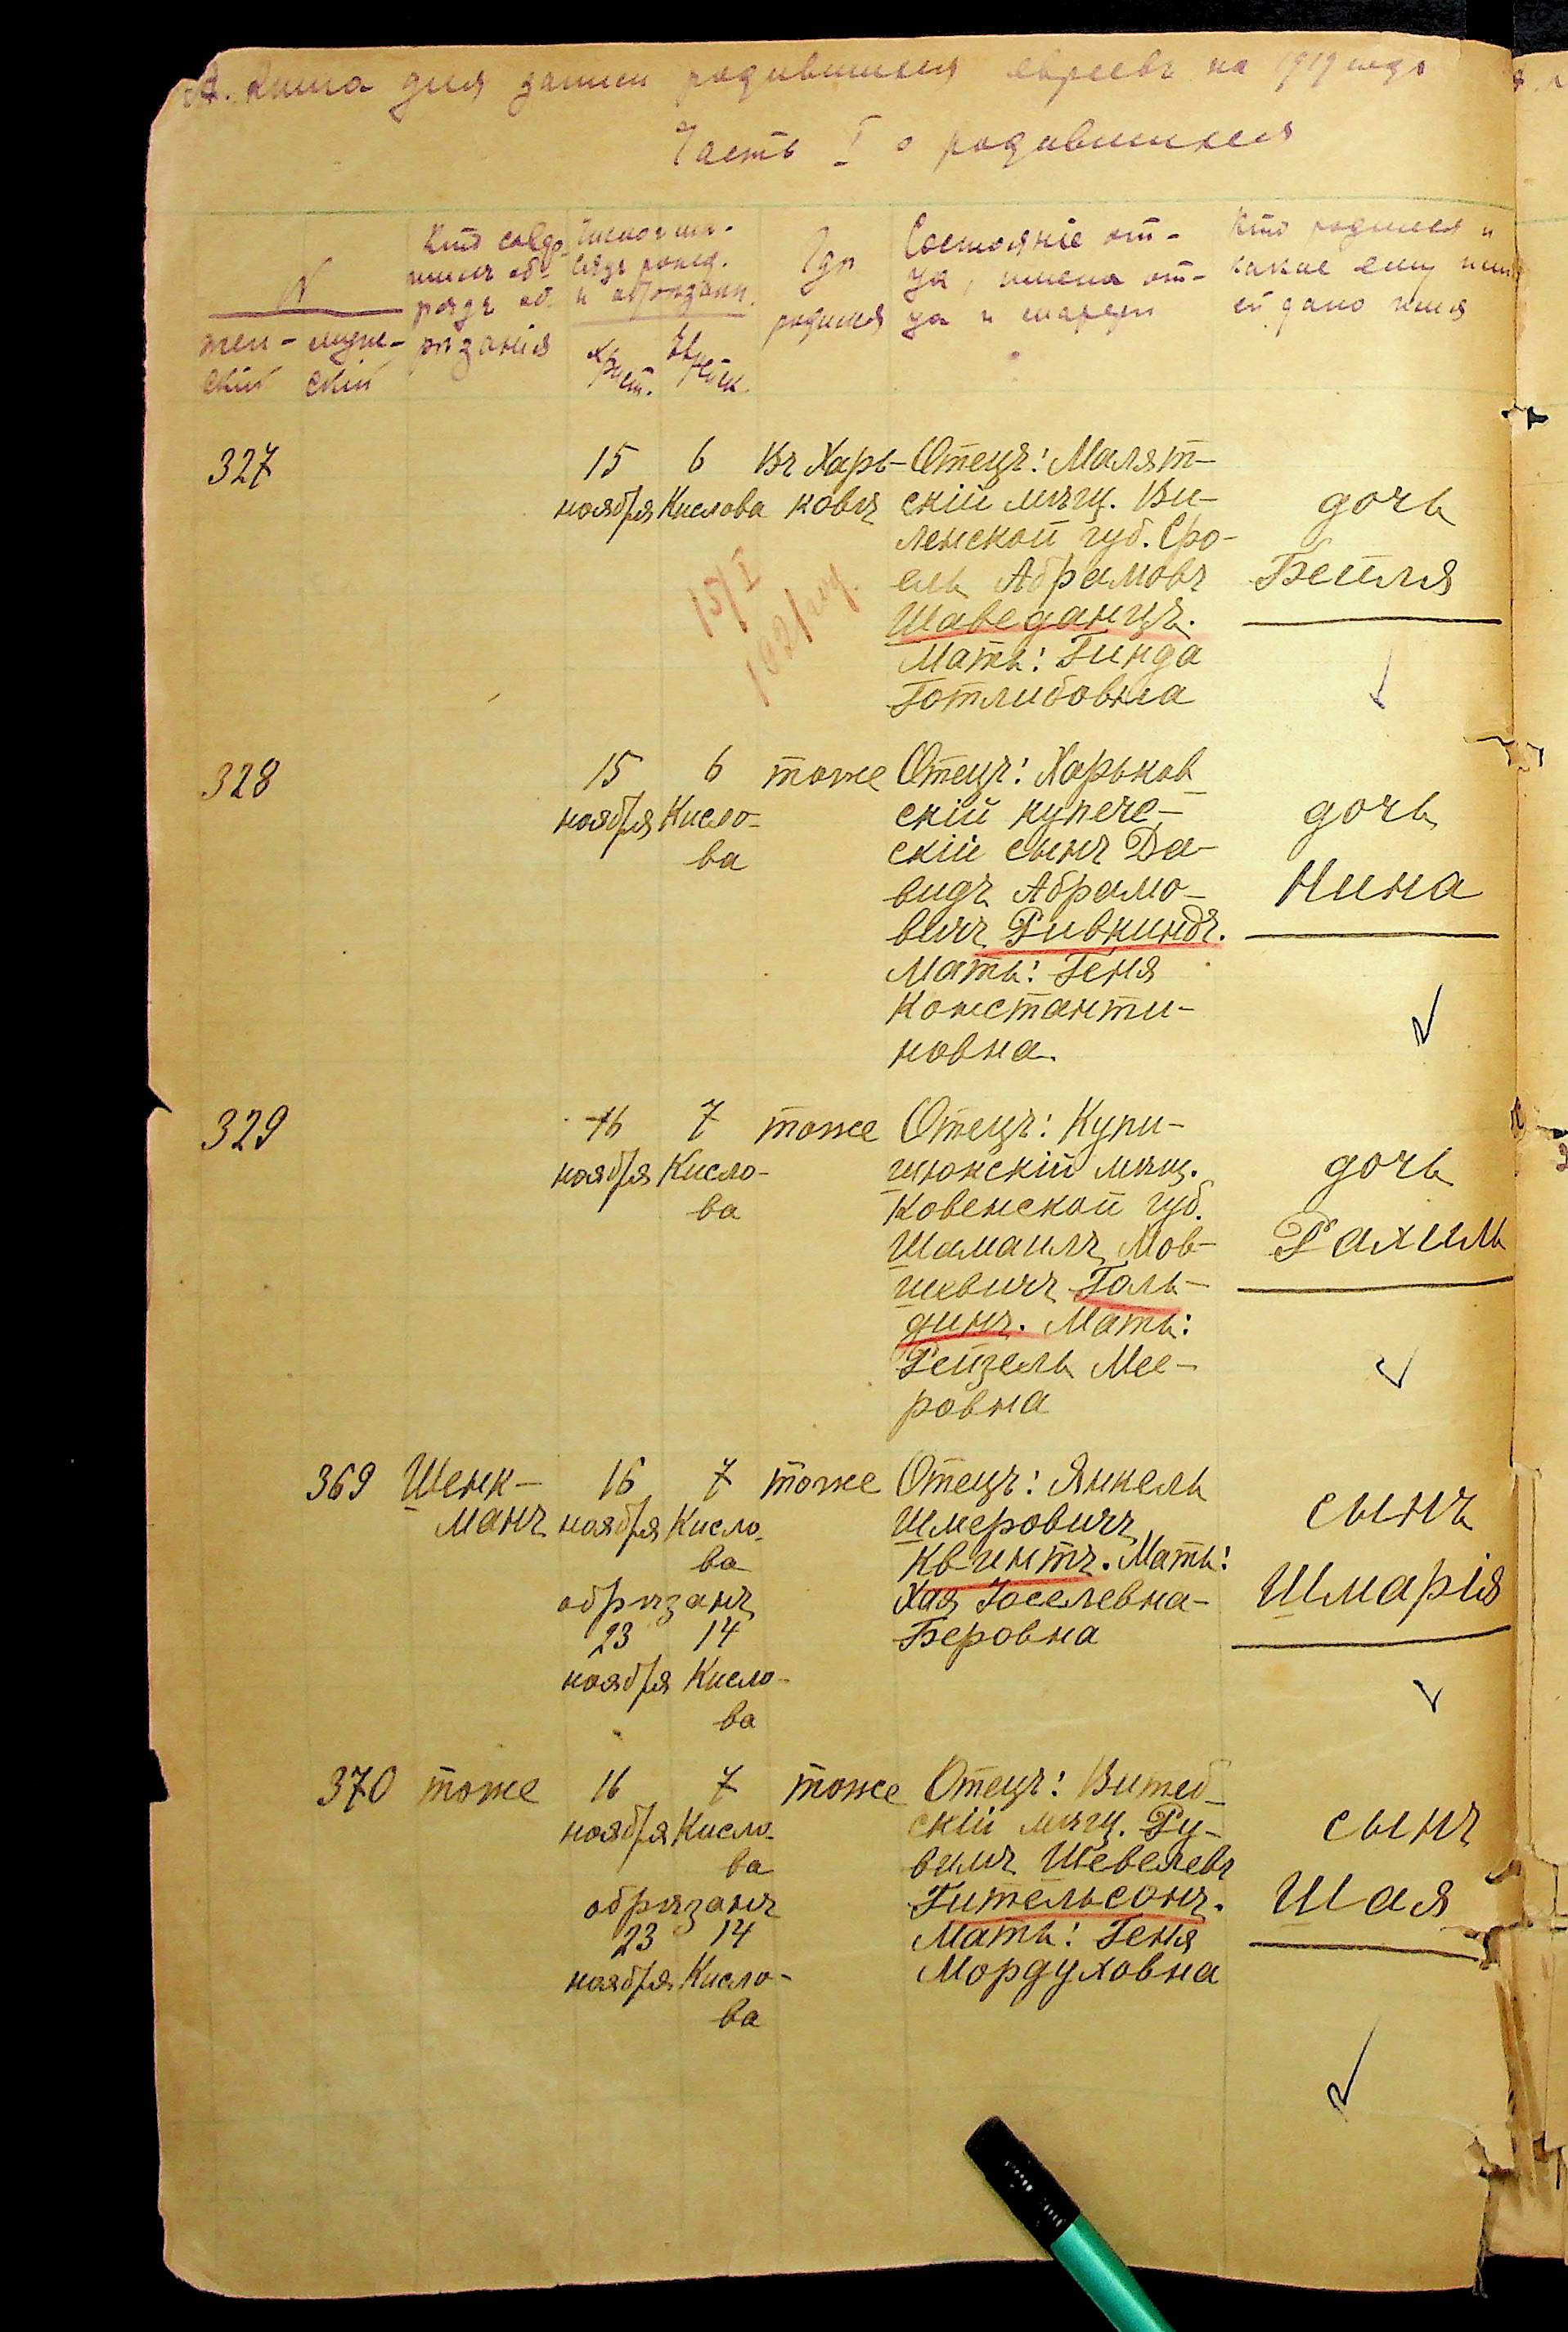 А. Книга для записи родившихся евреевъ на 1919 годъ
Часть I о родившихся
N
жен-
скій
муж-
ской
Кто совер-
шилъ об-
рядъ об-
рѣзанія
Число и мѣ-
сяцъ рожд.
и обрѣзан.
Христ.
Еврейск.
Гдѣ
родился
Состояніе от-
ца, имена от-
ца и матери
Кто родился и
какое ему или
ей дано имя
327
15
ноября
6
Кислова
Въ Харь-
ковѣ
Отецъ: Малят-
скій мѣщ. Ви-
ленской губ. Сро-
ель Абрамовъ
Шаведанцъ.
Мать: Гинда
Готлибовна
дочь
Бейля
15/I
328
15
ноября
6
Кисло-
ва
тоже
Отецъ: Харьков-
скій купече-
скій сынъ Да-
видъ Абрамо-
вичъ Ривкиндъ.
Мать: Геня
Константи-
новна.
дочь
Нина
329
16
ноября
7
Кисло-
ва
тоже
Отецъ: Купи-
шкокскій мѣщ.
Ковенской губ.
Шамаилъ Мов-
шевичъ Голь-
динъ. Мать:
Рейзель Мее-
ровна
дочь
Рахиль
369
Шенк-
манъ
16
ноября
7
Кисло-
ва
обрѣзанъ
23
ноября
14
Кисло-
ва
тоже
Отецъ: Янкель
Шмеровичъ
Квинтъ. Мать:
Хая Іоселевна-
Беровна
сынъ
Шмарія
370
тоже
16
ноября
7
Кисло-
ва
обрѣзанъ
23
ноября
14
Кисло-
ва
тоже
Отецъ: Витеб-
скій мѣщ. Ру-
вимъ Шевелевъ
Гительсонъ.
Мать: Геня
Мордуховна
сынъ
Шая